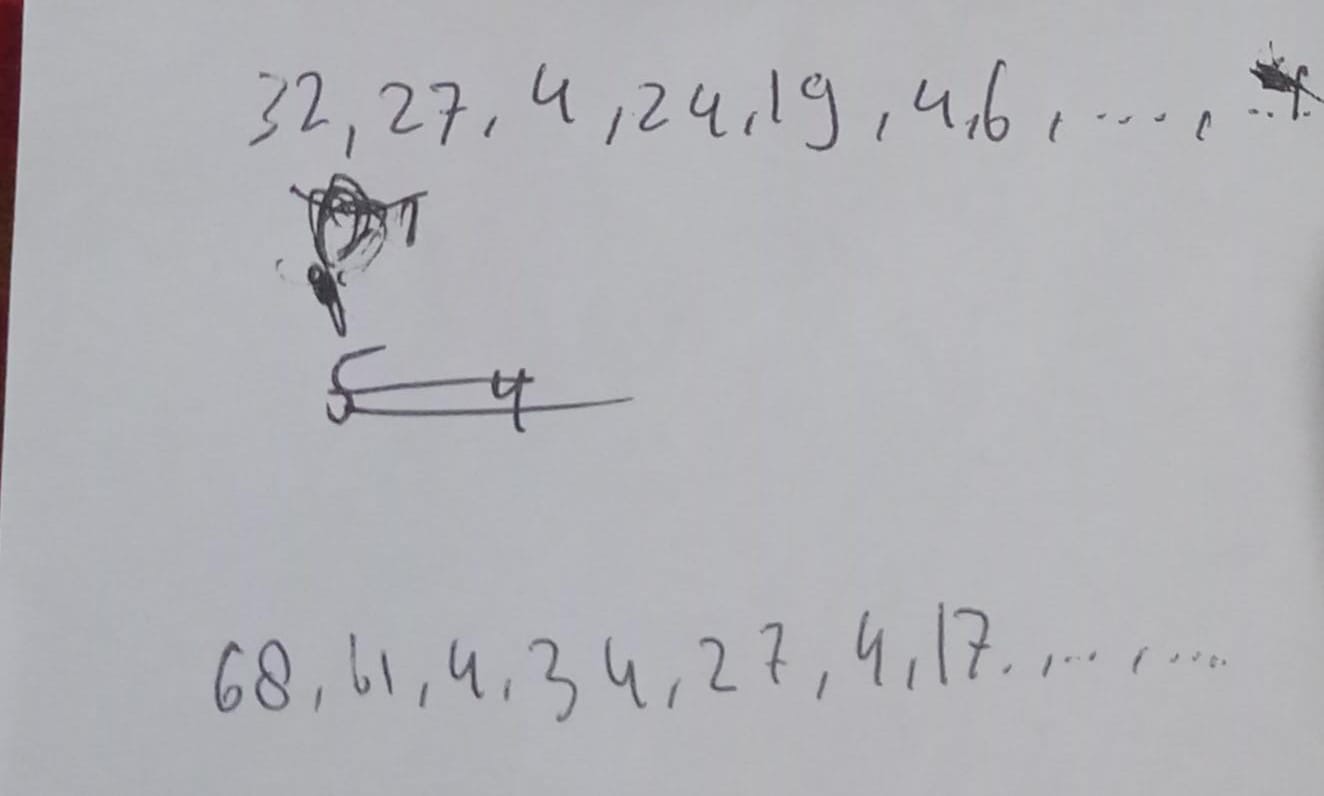 32, 27, 4, 24, 19, 4, 6, ...., ....
5 4
68, 61, 4, 34, 27, 4, 17. , ... , .....